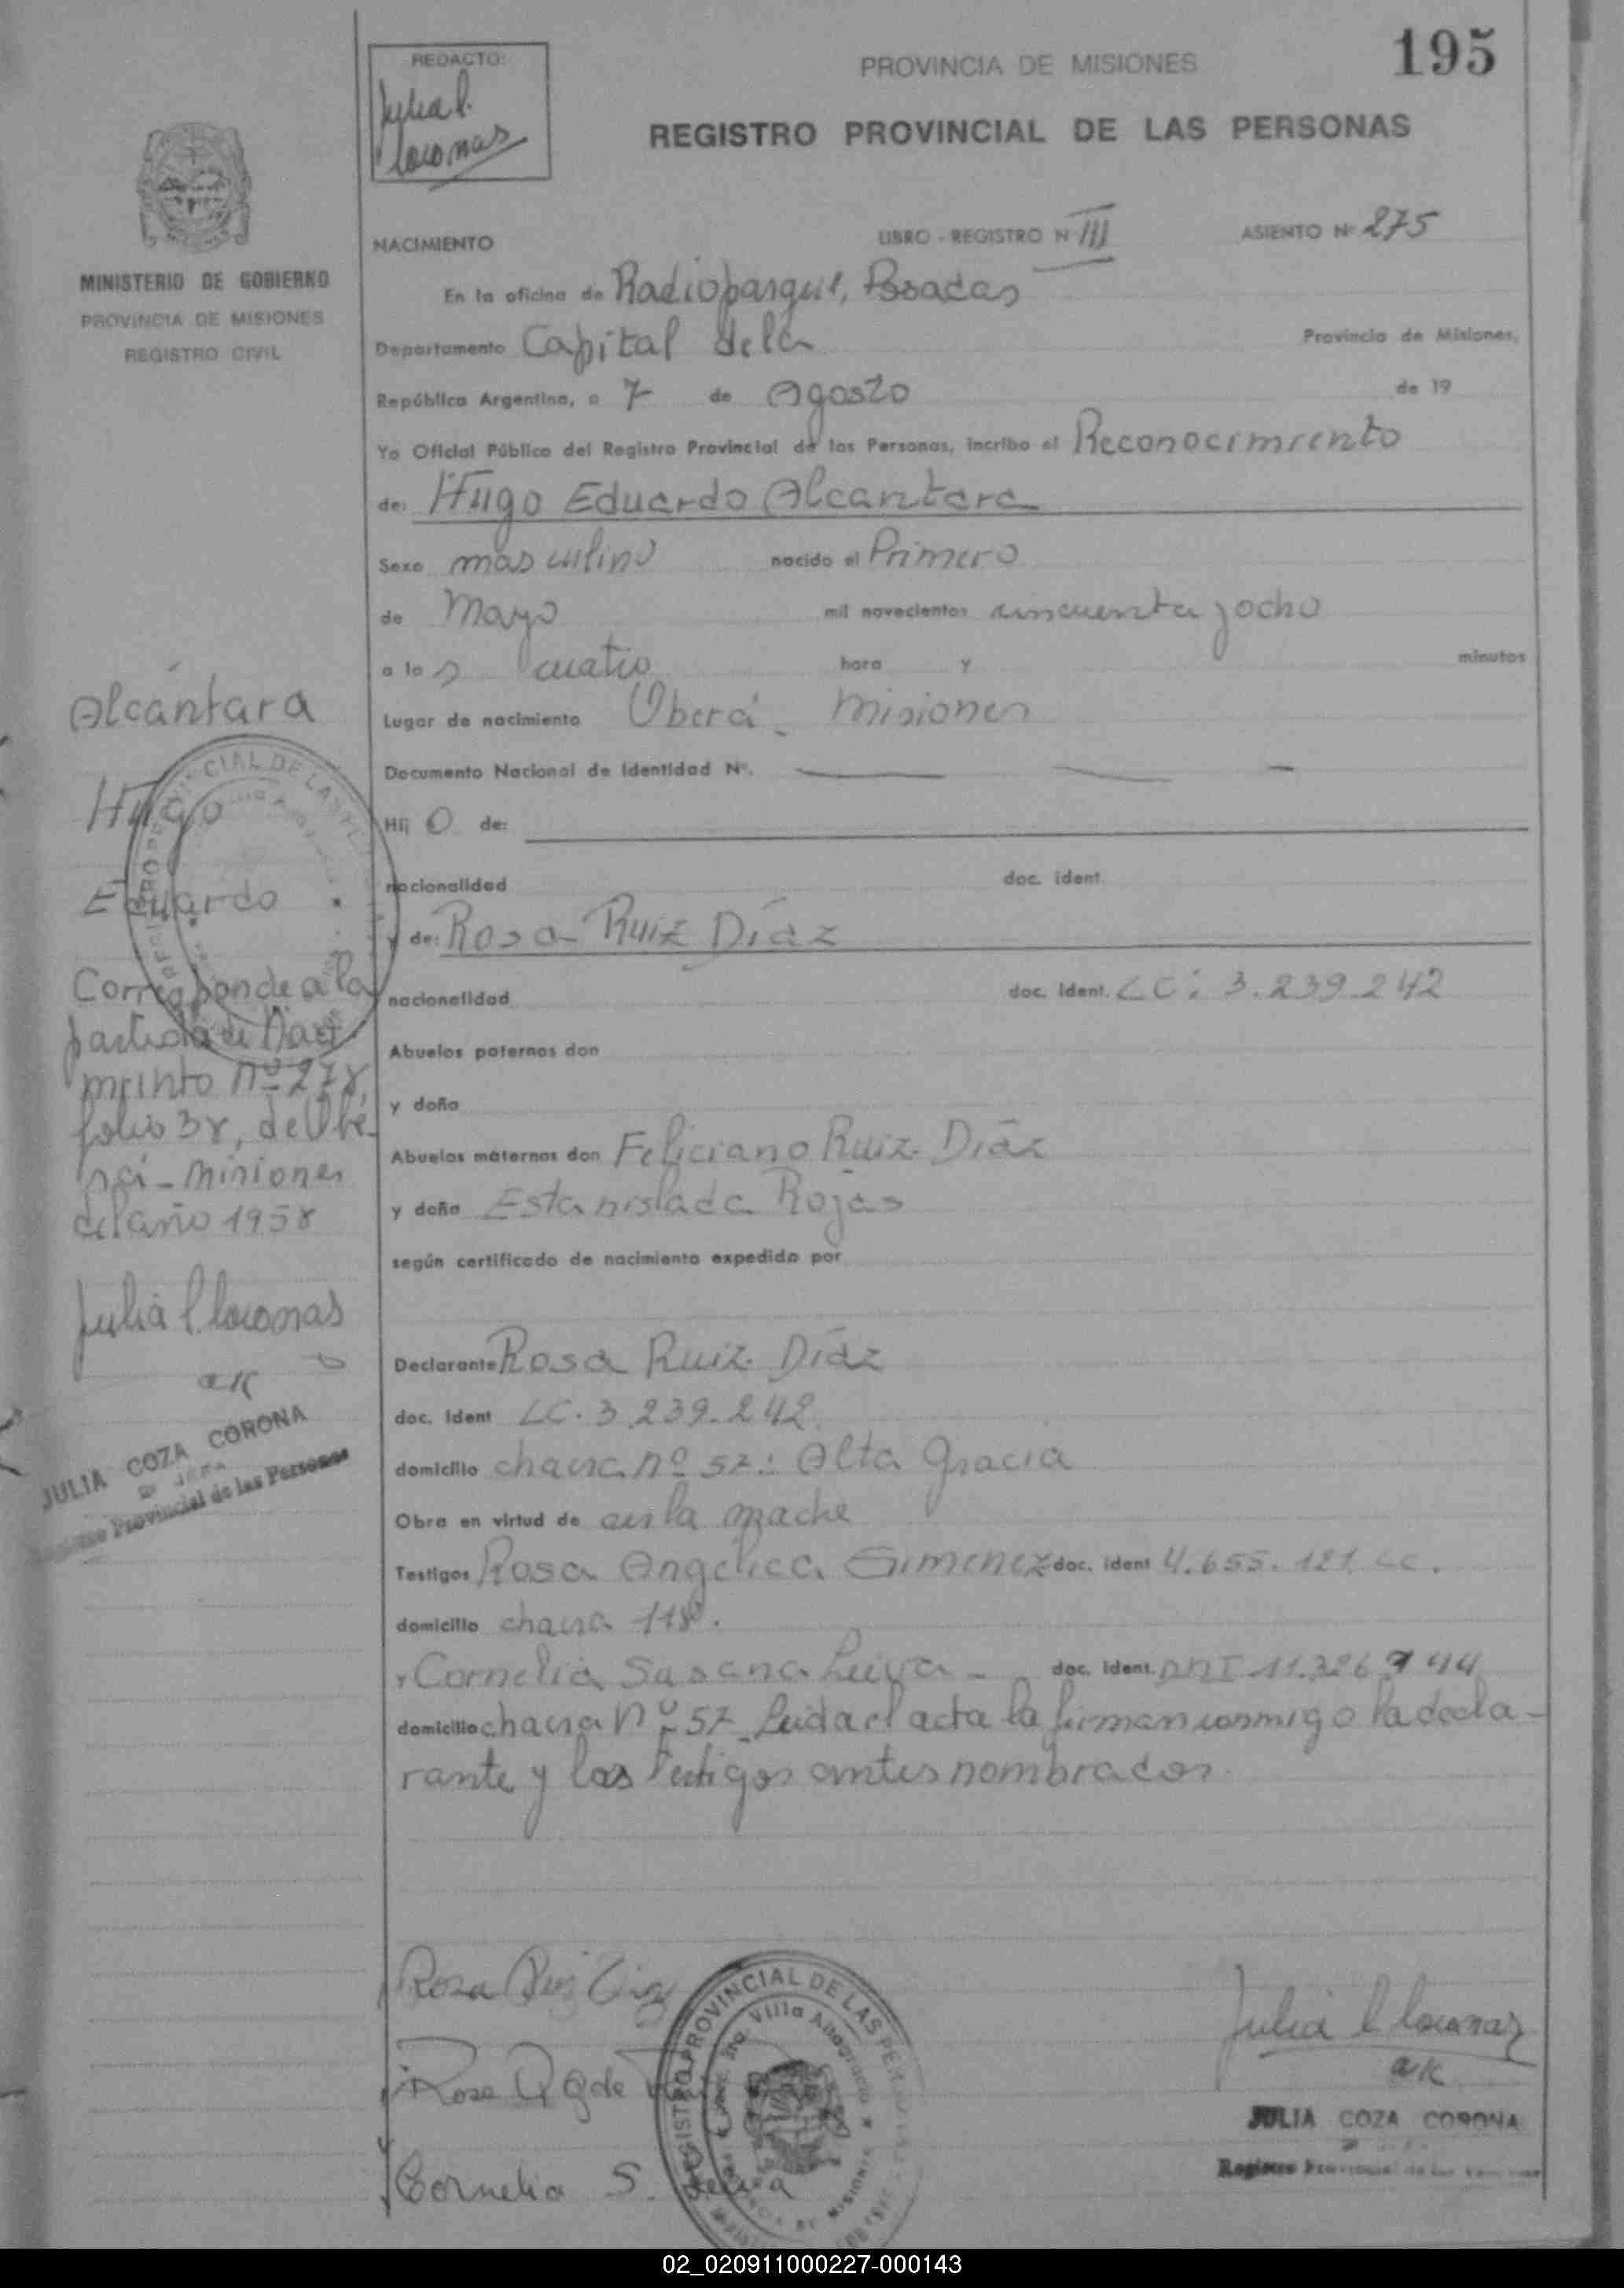 195
REDACTO:
PROVINCIA DE MISIONES
REGISTRO PROVINCIAL DE LAS PERSONAS
MINISTERIO DE GOBIERNO
PROVINCIA DE MISIONES
REGISTRO CIVIL
NACIMIENTO LIBRO - REGISTRO N III ASIENTO Nº 275
En la oficina de Radioparque, Posadas
Departamento Capital de la Provincia de Misiones,
República Argentina, a 7 de Agosto de 19
Yo Oficial Público del Registro Provincial de las Personas, incribo el Reconocimiento
de: Hugo Eduardo Alcantara
Sexo masculino nacido el Primero
de Mayo mil novecientos cincuenta y ocho
a la s cuatro hora y minutos
Lugar de nacimiento Oberá - Misiones
Documento Nacional de Identidad Nº. — — —
Hij o de:
nacionalidad doc. ident.
y de: Rosa Ruiz Díaz
nacionalidad doc. ident. LC: 3.239.242
Abuelos paternos don
y doña
Abuelos maternos don Feliciano Ruiz Díaz
y doña Estanislada Rojas
según certificado de nacimiento expedido por
Declarante Rosa Ruiz Díaz
doc. ident LC. 3.239.242
domicilio chacra nº 57: Alta Gracia
Obra en virtud de ser la madre
Testigos Rosa Angelica Gimenez doc. ident 4.655.121 LC.
domicilio chacra 118.
y Cornelia Susana Leiva - doc. ident. DNI 11.326.944
domicilio chacra Nº 57 Leida el acta la firman conmigo la decla-
rante y los testigos antes nombrados
Alcántara
Hugo
Eduardo
Corresponde a la
partida de Naci
miento nº 278,
folio 38, de Obe-
rá - Misiones
del año 1958
JULIA COZA CORONA
Registro Provincial de las Personas
Rosa Ruiz Diaz
Cornelia S. Leiva
REGISTRO PROVINCIAL DE LAS PERSONAS
Villa Altagracia
JULIA COZA CORONA
Registro Provincial de las Personas
02_020911000227-000143